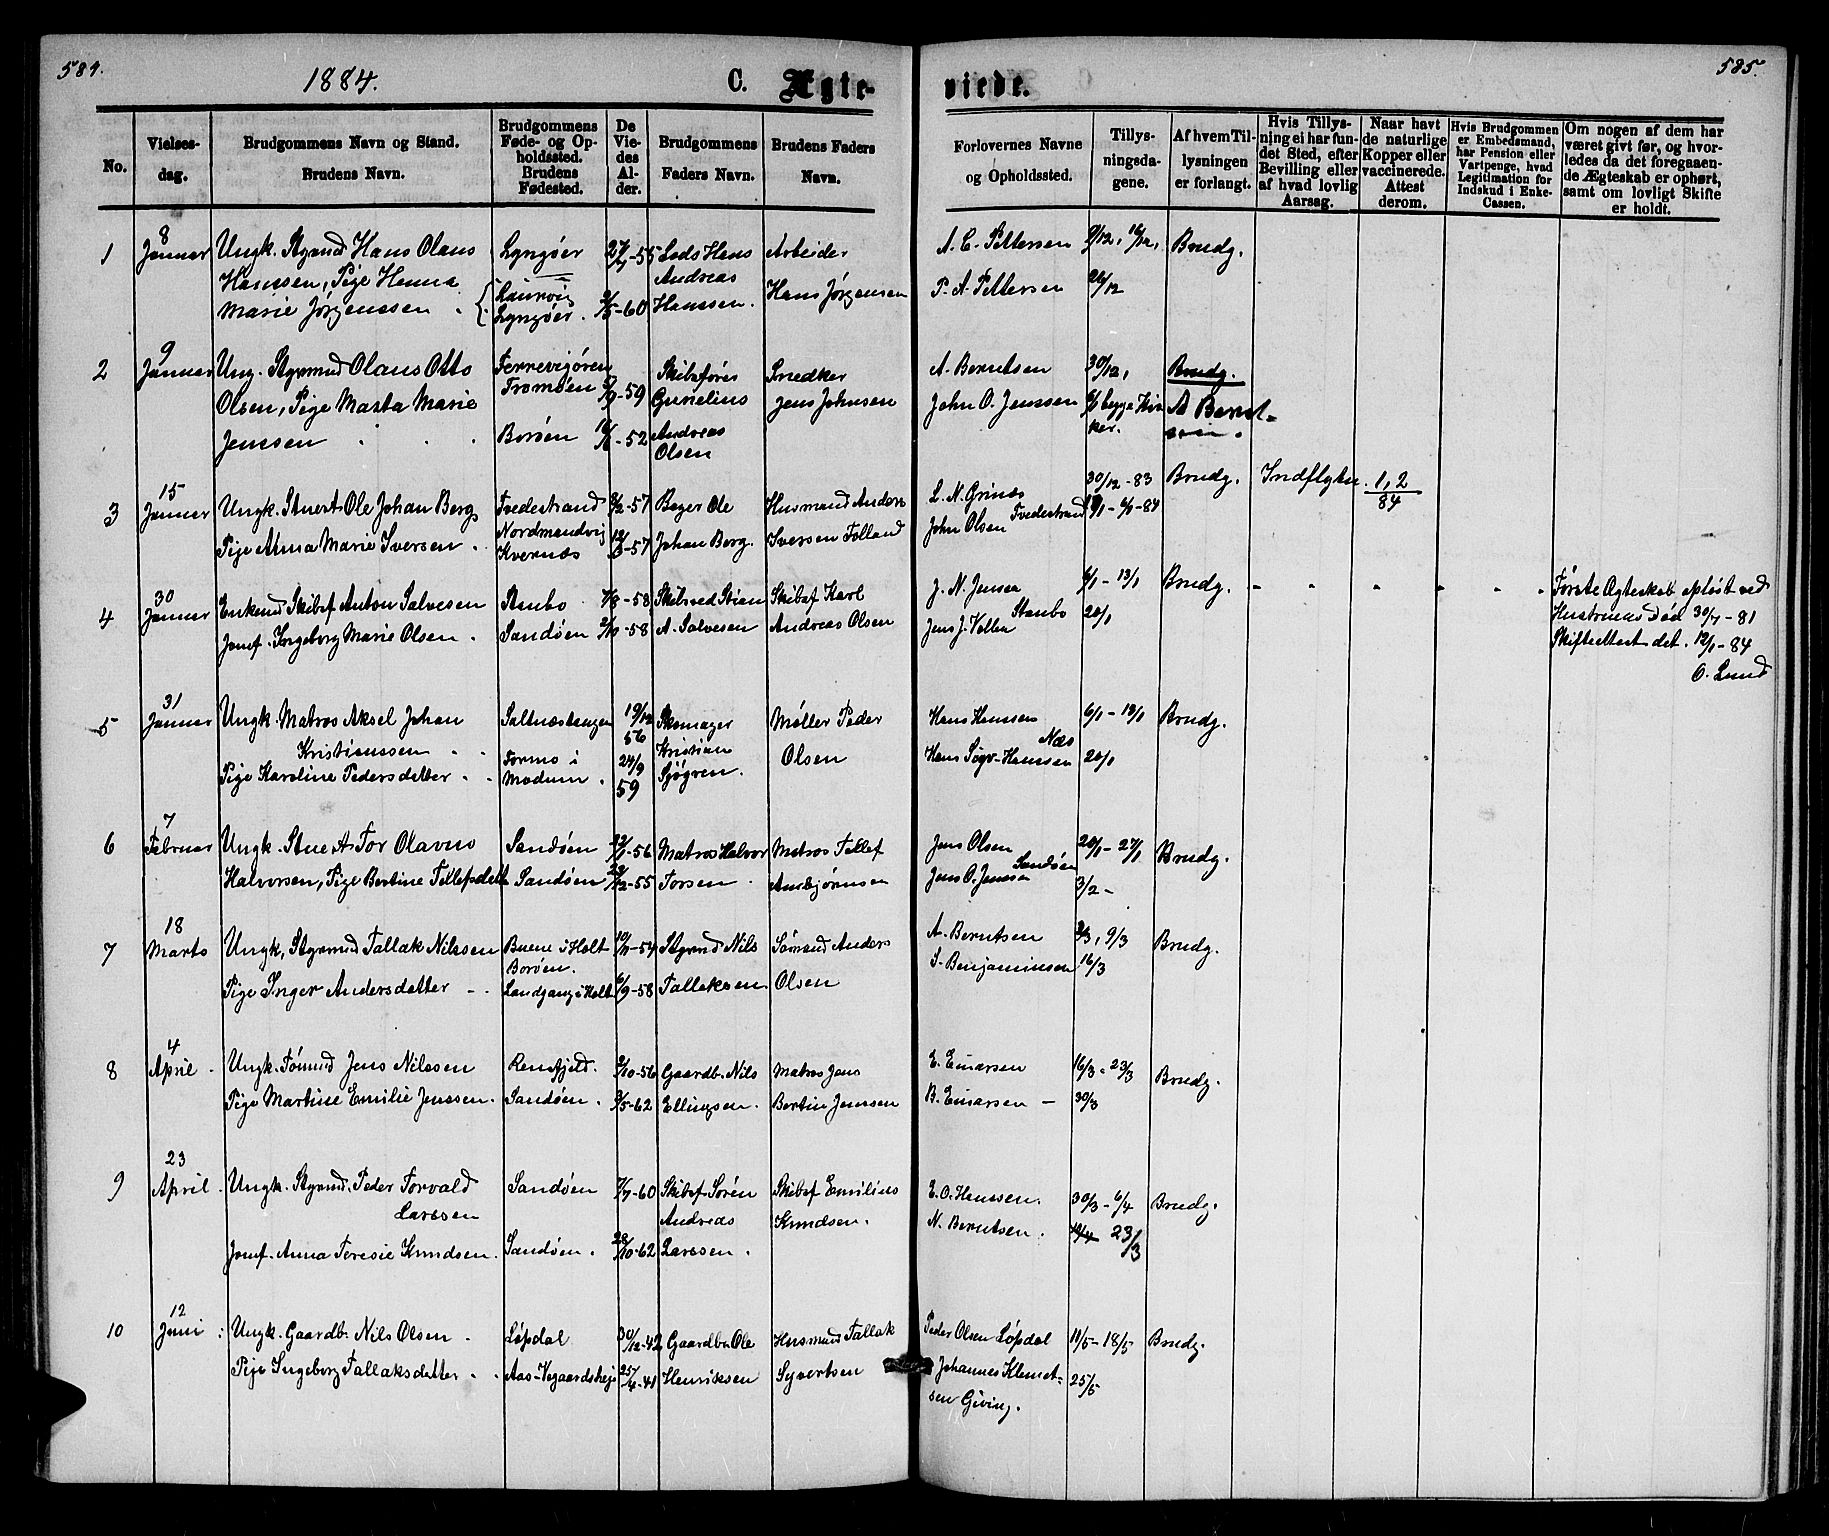 584.
1884.
C. Ægte-
viede.
585.
No.
Vielses-
dag.
Brudgommens Navn og Stand.
Brudens Navn.
Brudgommens
Føde- og Op-
holdssted.
Brudens
Fødested.
De
Vie-
des
Al-
der.
Brudgommens
Faders Navn.
Brudens Faders
Navn.
Forlovernes Navne
og Opholdssted.
Tillys-
ningsda-
gene.
Af hvem Til-
lysningen
er forlangt.
Hvis Tillys-
ning ei har fun-
det Sted, efter
Bevilling eller
af hvad lovlig
Aarsag.
Naar havt
de naturlige
Kopper eller
vaccinerede.
Attest
derom.
Hvis Brudgommen
er Embedsmand,
har Pension eller
Vartpenge, hvad
Legitimation for
Indskud i Enke-
Cassen.
Om nogen af dem har
været givt før, og hvor-
ledes da det foregaaen-
de Ægteskab er ophørt,
samt om lovligt Skifte
er holdt.
1
8
Januar
Ungk. Styrmd Hans Olaus
Hanssen, Pige Hanna
Marie Jørgenssen.
Lyngøer
Laurvig
Lyngøer.
-55
-60
Lods Hans
Andreas
Hanssen.
Arbeider
Hans Jørgensen
A. C. Pettersen
P. A. Pettersen
26/12
Brudg.
2
9
Januar
Ung. Styrmd Olaus Otto
Olsen, Pige Marta Marie
Jenssen
Tromøen
Borøen
-59
-52
Skibsfører
Gunelius
Andreas
Olsen
Snedker
Jens Johnsen
A. Berntsen
John O. Jenssen
30/12,
begge Kir
ker.
Brudg.
A Bernt-
sen.
3
15
Januar
Ungk. Stuert Ole Johan Berg
Pige Anna Marie Iversen.
Tvedestrand
Nordmandvig
Kvernæs
-57
-57
Bager Ole
Johan Berg.
Husmand Anders
Iversen Folland
L. N. Grinæs
John Olsen Tvedestrand
30/12 - 83
6/1-84
Brudg.
Indflyttn.
1, 2
84
4
30
Januar
Enkemd Skibsf Anton Salvesen
Jomf. Ingeborg Marie Olsen.
Staubo.
Sandøen
-58
-58
Skibsred Stian
A. Salvesen
Skibsf Karl
Andreas Olsen
J. N. Jensen
Jens J. Vollen Staubo
6/1 - 13/1
20/1
Brudg.
Første Ægteskab opløst ved
Hustruens Død 30/7 - 81
Skifteattest dat. 12/1 - 84
O. Lund
5
31
Januar
Ungk. Matros Aksel Johan
Kristianssen
Pige Karoline Pedersdatter.
Saltnæstangen
Formo i
Modum.
19/12
56
24/9
59
Skomager
Kristian
Sjøgren.
Møller Peder
Olsen
Hans Hanssen
Næs
Hans Sigv. Hanssen
6/1 - 13/1
20/1
Brudg.
6
7
Februar
Ungk. Stuert Tor Olavus
Halvorsen, Pige Bertine Tellefsdatt
Sandøen
Sandøen
-56
-55
Matros Halvor
Torsen.
Matros Tellef
Anbjørnsen
Jens Olsen
Jens O. Jensen Sandøen
20/1 - 27/1
3/2 -
Brudg.
7
18
Marts
Ungk, Styrmd Tallak Nilssen
Pige Inger Andersdatter
Buene i Holt
Borøen.
Landgang i Holt
-54
6/9 -58
Styrmd Nils
Tallaksen.
Sømand Anders
Olsen
A. Berntsen
S. Benjaminsen
9/3
16/3
Brudg.
8
4
April.
Ungk. Tømmd Jens Nilssen
Pige Martine Emilie Jenssen.
Rensfjeld.
Sandøen.
-56
-62
Gaardb. Nils
Ellingsen.
Matros Jens
Bertin Jenssen
E. Einarsen
B. Einarsen -
16/3 - 23/3
30/3
Brudg.
9
23
April.
Ungk. Styrmd. Peder Torvald
Larssen
Jomf. Anna Teresie Knudsen.
Sandøen
Sandøen.
7/7-60
28/10-62
Skibsf Søren
Andreas
Larssen.
Skibsf Emilius
Knudsen.
E. O. Hanssen.
N. Berntsen.
30/3 - 6/4
23/3
Brudg.
10
12
Juni
Ungk. Gaardb. Nils Olsen.
Pige Ingeborg Tallaksdatter.
Løpdal
Aas-Vegaardshei
30/12-42
25/4-41
Gaardbr Ole
Henriksen
Husmand Tallak
Syvertsen
Peder Olsen Løpdal
Johannes Klemet-
sen Giving.
11/5 - 18/5
25/5
Brudg.